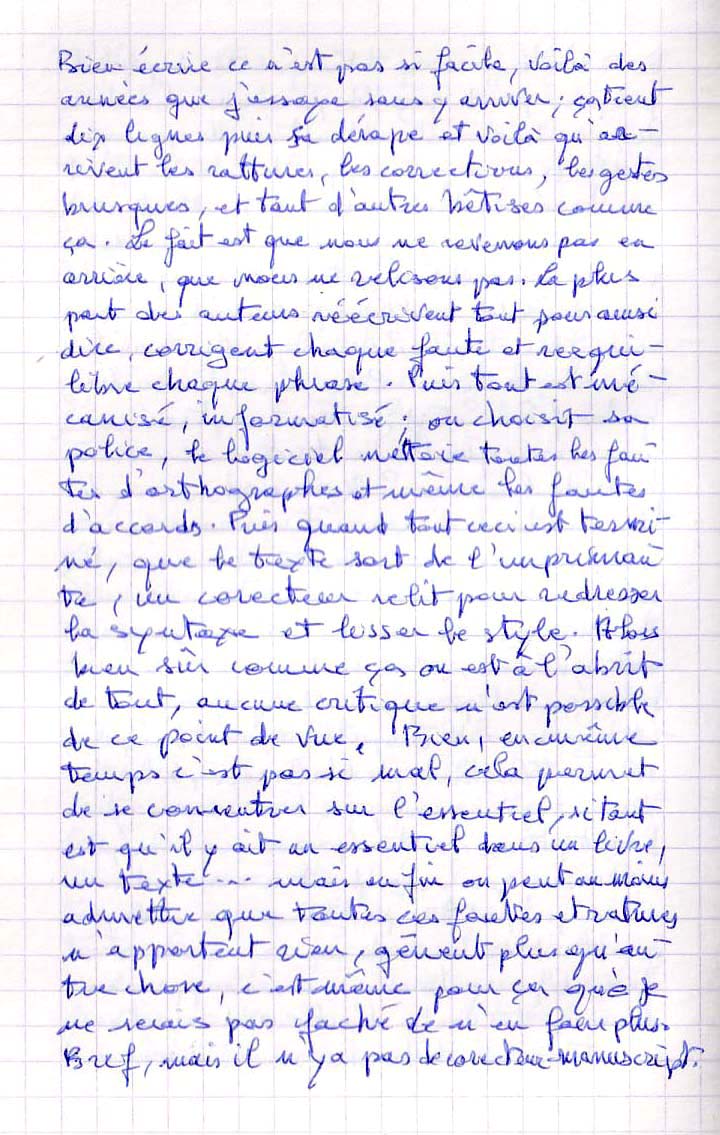 Bien écrire ce n'est pas si facile, voilà des
années que j'essaye sans y arriver; ça tient
dix lignes puis ça dérape et voilà qu'ar-
rivent les rattures, les corrections, les gestes
brusques, et tant d'autres bêtises comme
ça. Le fait est que nous ne revenons pas en
arrière, que nous ne relisons pas. La plus
part des auteurs réécrivent tout pour ainsi
dire, corrigent chaque faute et reequi-
libre chaque phrase. Puis tout est mé-
canisé, informatisé; on choisit sa
police, le logiciel nettoie toutes les fau
tes d'orthographes et même les fautes
d'accords. Puis quand tout ceci est termi-
né, que le texte sort de l'impriman
te, un corecteur relit pour redresser
la syntaxe et lisser le style. Alors
bien sûr comme ça on est à l'abrit
de tout, aucune critique n'est possible
de ce point de vue. Bien, en même
temps c'est pas si mal, cela permet
de se concentrer sur l'essentiel, si tant
est qu'il y ait un essentiel dans un livre,
un texte... mais enfin on peut au moins
admettre que toutes ces fautes et ratures
n'apportent rien, gênent plus qu'au
tre chose, c'est même pour ça que je
ne serais pas faché de n'en faire plus.
Bref, mais il n'y a pas de corecteur-manuscript.